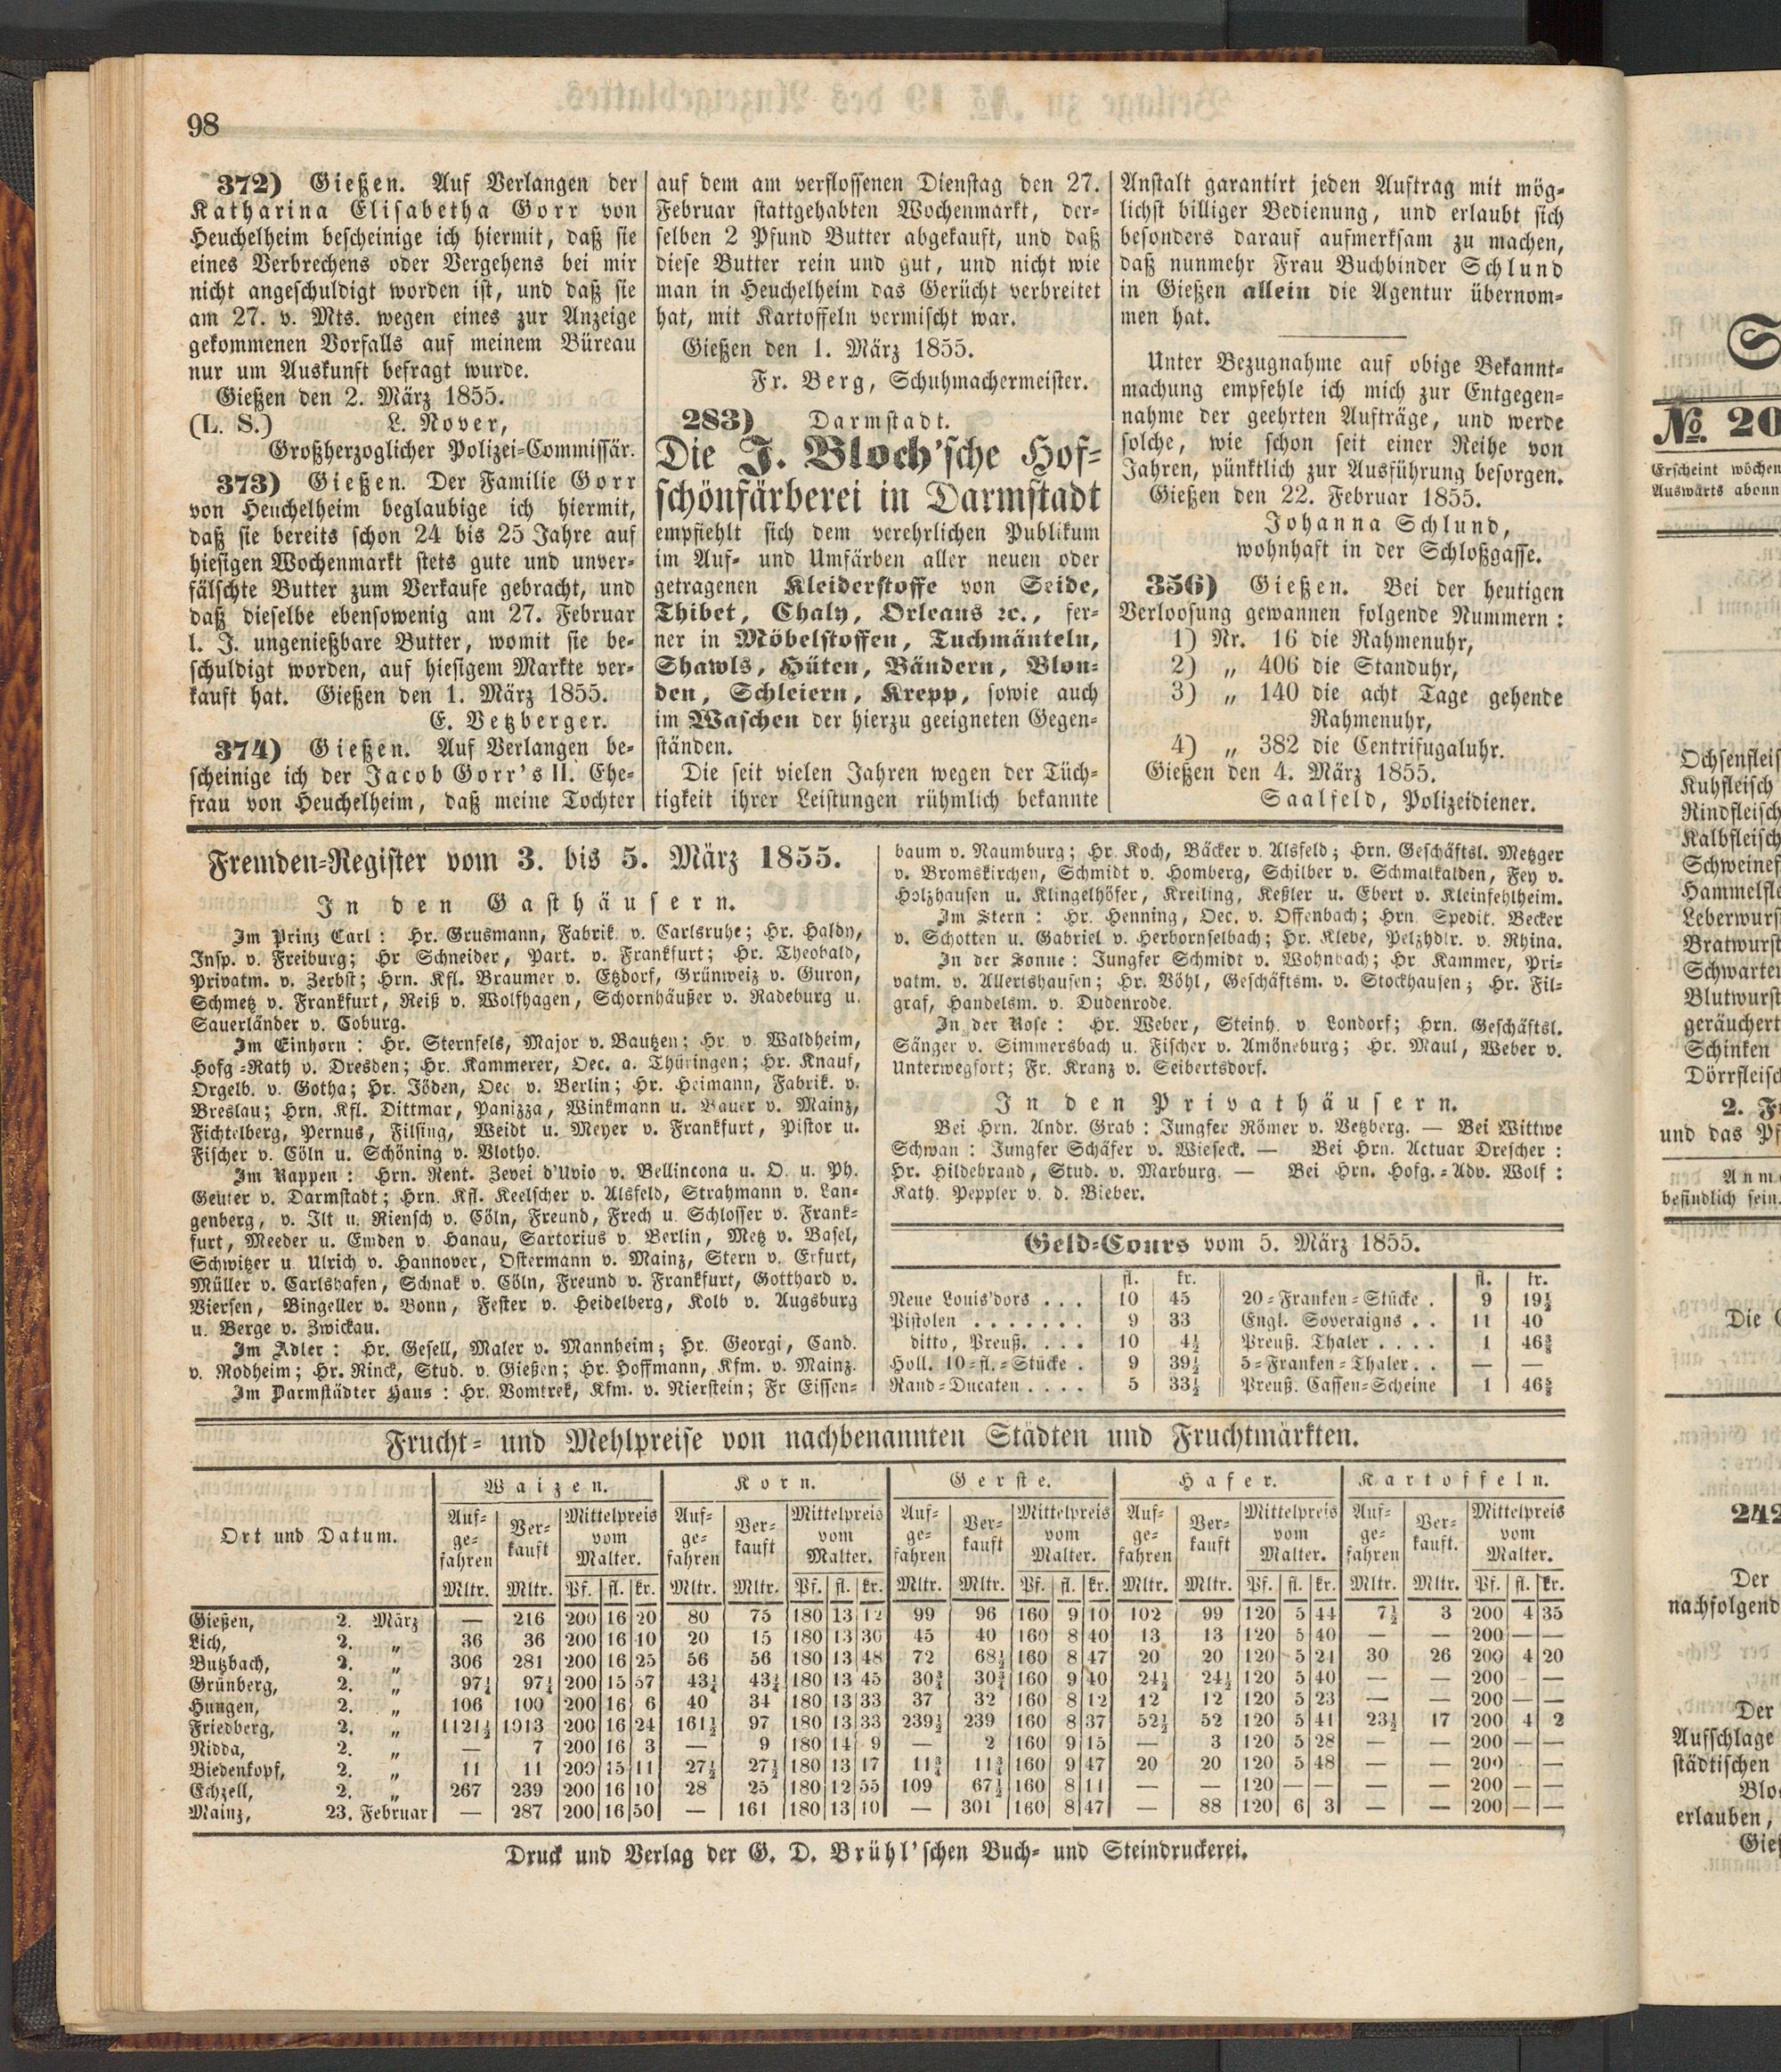 98
372) Gießen. Auf Verlangen der
Katharina Elisabetha Gorr von
Heuchelheim bescheinige ich hiermit, daß sie
eines Verbrechens oder Vergehens bei mir
nicht angeschuldigt worden ist, und daß sie
am 27. v. Mts. wegen eines zur Anzeige
gekommenen Vorfalls auf meinem Büreau
nur um Auskunft befragt wurde.
Gießen den 2. März 1855.
(L. S.) L. Nover,
Großherzoglicher Polizei-Commissär.
373) Gießen. Der Familie Gorr
von Heuchelheim beglaubige ich hiermit,
daß sie bereits schon 24 bis 25 Jahre auf
hiesigen Wochenmarkt stets gute und unver-
fälschte Butter zum Verkaufe gebracht, und
daß dieselbe ebensowenig am 27. Februar
l. J. ungenießbare Butter, womit sie be-
schuldigt worden, auf hiesigem Markte ver-
kauft hat. Gießen den 1. März 1855.
E. Vetzberger.
374) Gießen. Auf Verlangen be-
scheinige ich der Jacob Gorr's II. Ehe-
frau von Heuchelheim, daß meine Tochter
auf dem am verflossenen Dienstag den 27.
Februar stattgehabten Wochenmarkt, der-
selben 2 Pfund Butter abgekauft, und daß
diese Butter rein und gut, und nicht wie
man in Heuchelheim das Gerücht verbreitet
hat, mit Kartoffeln vermischt war.
Gießen den 1. März 1855.
Fr. Berg, Schuhmachermeister.
283) Darmstadt.
Die J. Bloch'sche Hof-
schönfärberei in Darmstadt
empfiehlt sich dem verehrlichen Publikum
im Auf- und Umfärben aller neuen oder
getragenen Kleiderstoffe von Seide,
Thibet, Chaly, Orleans ꝛc., fer-
ner in Möbelstoffen, Tuchmänteln,
Shawls, Hüten, Bändern, Blon-
den, Schleiern, Krepp, sowie auch
im Waschen der hierzu geeigneten Gegen-
ständen.
Die seit vielen Jahren wegen der Tüch-
tigkeit ihrer Leistungen rühmlich bekannte
Anstalt garantirt jeden Auftrag mit mög-
lichst billiger Bedienung, und erlaubt sich
besonders darauf aufmerksam zu machen,
daß nunmehr Frau Buchbinder Schlund
in Gießen allein die Agentur übernom-
men hat.
Unter Bezugnahme auf obige Bekannt-
machung empfehle ich mich zur Entgegen-
nahme der geehrten Aufträge, und werde
solche, wie schon seit einer Reihe von
Jahren, pünktlich zur Ausführung besorgen.
Gießen den 22. Februar 1855.
Johanna Schlund,
wohnhaft in der Schloßgasse.
356) Gießen. Bei der heutigen
Verloosung gewannen folgende Nummern:
1) Nr. 16 die Rahmenuhr,
2) „ 406 die Standuhr,
3) „ 140 die acht Tage gehende
Rahmenuhr,
4) „ 382 die Centrifugaluhr.
Gießen den 4. März 1855.
Saalfeld, Polizeidiener.
Fremden-Register vom 3. bis 5. März 1855.
In den Gasthäusern.
Im Prinz Carl: Hr. Grusmann, Fabrik. v. Carlsruhe; Hr. Haldy,
Insp. v. Freiburg; Hr Schneider, Part. v. Frankfurt; Hr. Theobald,
Privatm. v. Zerbst; Hrn. Kfl. Braumer v. Etzdorf, Grünweiz v. Guron,
Schmetz v. Frankfurt, Reiß v. Wolfhagen, Schornhäußer v. Radeburg u.
Sauerländer v. Coburg.
Im Einhorn: Hr. Sternfels, Major v. Bautzen; Hr. v. Waldheim,
Hofg-Rath v. Dresden; Hr. Kammerer, Oec. a. Thüringen; Hr. Knauf,
Orgelb. v. Gotha; Hr. Jöden, Oec v. Berlin; Hr. Heimann, Fabrik. v.
Breslau; Hrn. Kfl. Dittmar, Panizza, Winkmann u. Bauer v. Mainz,
Fichtelberg, Pernus, Filsing, Weidt u. Meyer v. Frankfurt, Pistor u.
Fischer v. Cöln u. Schöning v. Vlotho.
Im Rappen: Hrn. Rent. Zevei d'Uvio v. Bellincona u. O. u. Ph.
Geuter v. Darmstadt; Hrn. Kfl. Keelscher v. Alsfeld, Strahmann v. Lan-
genberg, v. Ilt u. Riensch v. Cöln, Freund, Frech u. Schlosser v. Frank-
furt, Meeder u. Emden v. Hanau, Sartorius v. Berlin, Metz v. Basel,
Schwitzer u. Ulrich v. Hannover, Ostermann v. Mainz, Stern v. Erfurt,
Müller v. Carlshafen, Schnak v. Cöln, Freund v. Frankfurt, Gotthard v.
Viersen, Bingeller v. Bonn, Fester v. Heidelberg, Kolb v. Augsburg
u. Berge v. Zwickau.
Im Adler: Hr. Gesell, Maler v. Mannheim; Hr. Georgi, Cand.
v. Rodheim; Hr. Rinck, Stud. v. Gießen; Hr. Hoffmann, Kfm. v. Mainz.
Im Darmstädter Haus: Hr. Vomtrek, Kfm. v. Nierstein; Fr Eissen-
baum v. Naumburg; Hr. Koch, Bäcker v. Alsfeld; Hrn. Geschäftsl. Metzger
v. Bromskirchen, Schmidt v. Homberg, Schilber v. Schmalkalden, Fey v.
Holzhausen u. Klingelhöfer, Kreiling, Keßler u. Ebert v. Kleinfehlheim.
Im Stern: Hr. Henning, Oec. v. Offenbach; Hrn. Spedit. Becker
v. Schotten u. Gabriel v. Herbornselbach; Hr. Klebe, Pelzhdlr. v. Rhina.
In der Sonne: Jungfer Schmidt v. Wohnbach; Hr Kammer, Pri-
vatm. v. Allertshausen; Hr. Böhl, Geschäftsm. v. Stockhausen; Hr. Fil-
graf, Handelsm. v. Dudenrode.
In der Rose: Hr. Weber, Steinh. v Londorf; Hrn. Geschäftsl.
Sänger v. Simmersbach u. Fischer v. Amöneburg; Hr. Maul, Weber v.
Unterwegfort; Fr. Kranz v. Seibertsdorf.
In den Privathäusern.
Bei Hrn. Andr. Grab: Jungfer Römer v. Vetzberg. — Bei Wittwe
Schwan: Jungfer Schäfer v. Wieseck. — Bei Hrn. Actuar Drescher:
Hr. Hildebrand, Stud. v. Marburg. — Bei Hrn. Hofg.-Adv. Wolf:
Kath. Peppler v. d. Bieber.
Geld-Cours vom 5. März 1855.
fl. kr. fl. kr.
Neue Louis'dors . . . 10 45 20-Franken-Stücke . 9 19½
Pistolen . . . . . . . 9 33 Engl. Soveraigns . . 11 40
ditto, Preuß. . . . 10 4½ Preuß. Thaler . . . . 1 46⅜
Holl. 10-fl.-Stücke . 9 39½ 5-Franken-Thaler . . — —
Rand-Ducaten . . . . 5 33½ Preuß. Cassen-Scheine 1 46⅝
Frucht- und Mehlpreise von nachbenannten Städten und Fruchtmärkten.
Waizen. Korn. Gerste. Hafer. Kartoffeln.
Ort und Datum.
Auf-gefahren Verkauft Mittelpreis vom Malter. Auf-gefahren Verkauft Mittelpreis vom Malter. Auf-gefahren Verkauft Mittelpreis vom Malter. Auf-gefahren Verkauft Mittelpreis vom Malter. Auf-gefahren Verkauft. Mittelpreis vom Malter.
Mltr. Mltr. Pf. fl. kr. Mltr. Mltr. Pf. fl. kr. Mltr. Mltr. Pf. fl. kr. Mltr. Mltr. Pf. fl. kr. Mltr. Mltr. Pf. fl. kr.
Gießen, 2. März — 216 200 16 20 80 75 180 13 12 99 96 160 9 10 102 99 120 5 44 7½ 3 200 4 35
Lich, 2. „ 36 36 200 16 10 20 15 180 13 30 45 40 160 8 40 13 13 120 5 40 — — 200 — —
Butzbach, 2. „ 306 281 200 16 25 56 56 180 13 48 72 68½ 160 8 47 20 20 120 5 21 30 26 200 4 20
Grünberg, 2. „ 97¼ 97¼ 200 15 57 43¼ 43¼ 180 13 45 30¾ 30¾ 160 9 40 24½ 24½ 120 5 40 — — 200 — —
Hungen, 2. „ 106 100 200 16 6 40 34 180 13 33 37 32 160 8 12 12 12 120 5 23 — — 200 — —
Friedberg, 2. „ 1121½ 1013 200 16 24 161½ 97 180 13 33 239½ 239 160 8 37 52½ 52 120 5 41 23½ 17 200 4 2
Nidda, 2. „ — 7 200 16 3 — 9 180 14 9 — 2 160 9 15 — 3 120 5 28 — — 200 — —
Biedenkopf, 2. „ 11 11 200 15 11 27½ 27½ 180 13 17 11¾ 11¾ 160 9 47 20 20 120 5 48 — — 200 — —
Echzell, 2. „ 267 239 200 16 10 28 25 180 12 55 109 67½ 160 8 11 — — 120 — — — — 200 — —
Mainz, 23. Februar — 287 200 16 50 — 161 180 13 10 — 301 160 8 47 — 88 120 6 3 — — 200 — —
Druck und Verlag der G. D. Brühl'schen Buch- und Steindruckerei.
№ 20
Erscheint wöchen
Auswärts abonn
Ochsenfleis
Kuhfleisch
Rindfleisch
Kalbfleisch
Schweinef
Hammelfle
Leberwurst
Bratwurst
Schwarten
Blutwurst
geräuchert
Schinken
Dörrfleisch
2. F
und das Pf
Anm
befindlich sein.
Die
242
Der
nachfolgend
Der
Aufschlage
städtischen
Blo
erlauben,
Gie